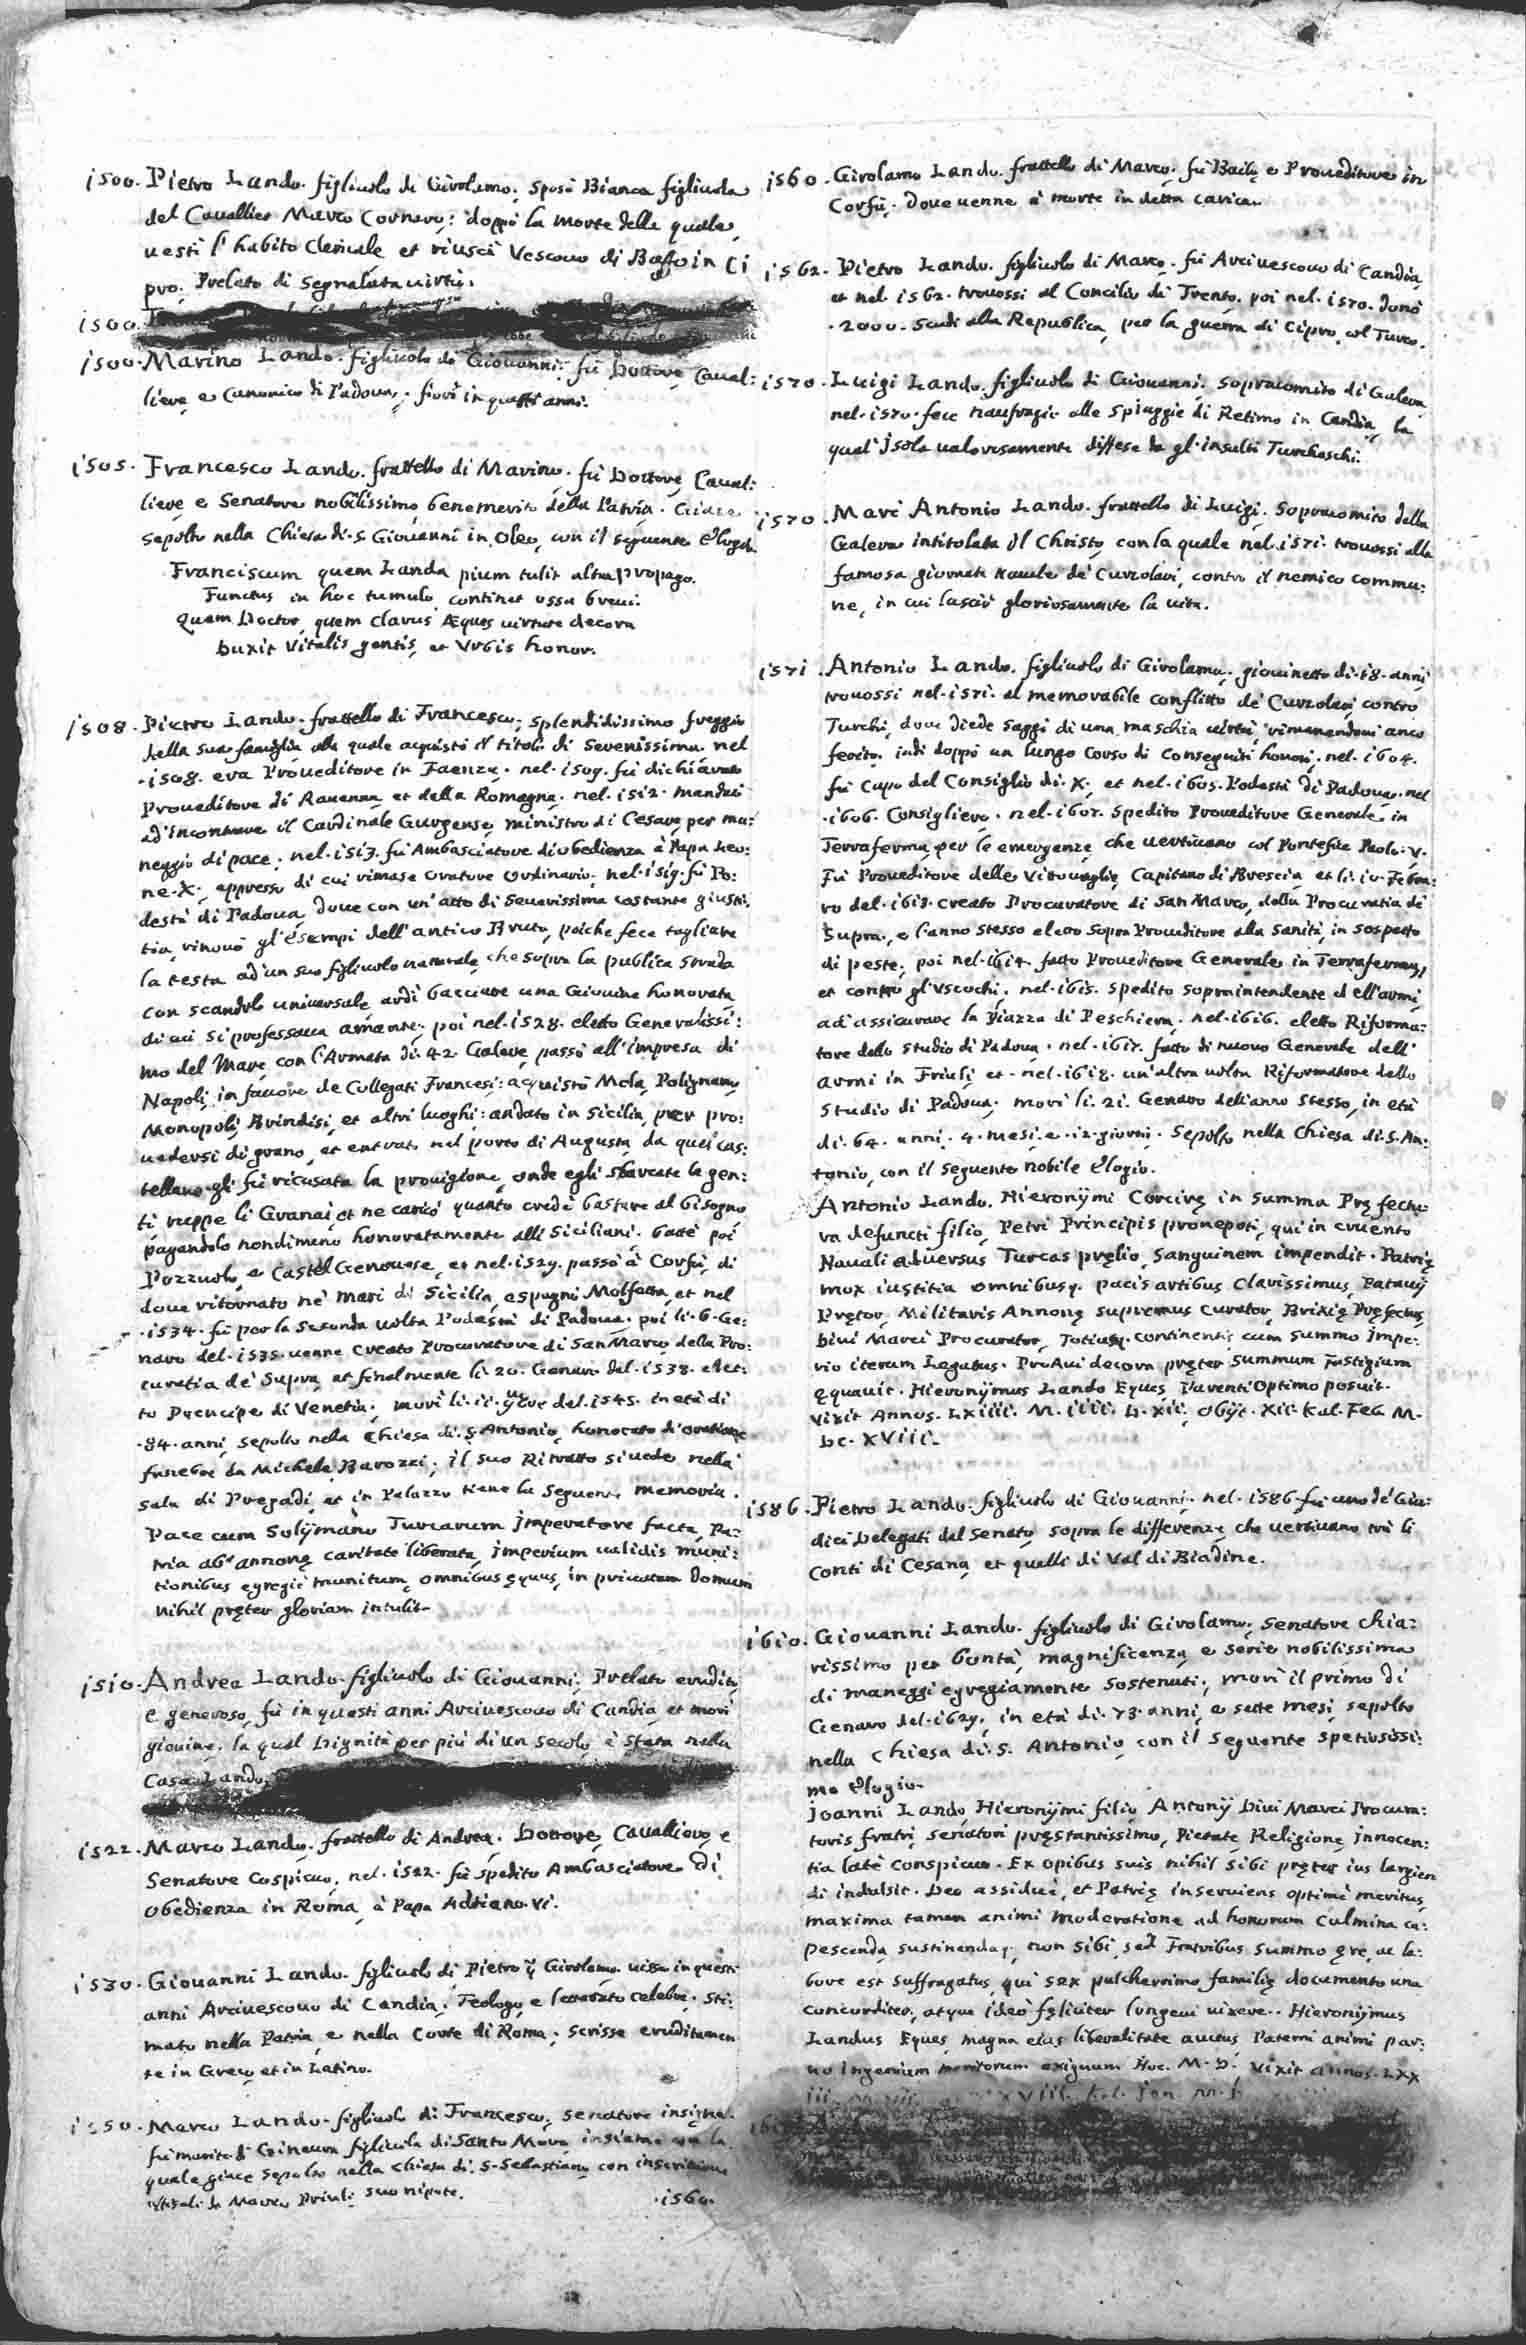 1500. Pietro Lando. figliuolo di Girolamo; sposò Bianca figliuola
del Cauallier Marco Cornaro; doppò la morte della quale,
uestì l'habito Clericale et riuscì Vescouo di Baffo in Ci
pro; Prelato di segnalata uirtù.
1500.
1500. Marino Lando. figliuolo di Giouanni; fù Dottore, Caual:
liere, e Canonico di Padoua; fiorì in questi anni.
1505. Francesco Lando. frattello di Marino. fù Dottore, Caual:
liere, e Senatore nobilissimo, benemerito della Patria. Giace
sepolto nella Chiesa di S. Giouanni in Oleo, con il seguente Elogio.
Franciscum quem Landa pium tulit alta propago.
Functus in hoc tumulo, continet ossa breui.
Quem Doctor, quem clarus Æques uirtute decora
Duxit Vitalis gentis, et Vrbis honor.
1508. Pietro Lando. frattello di Francesco; splendidissimo freggio
della sua famiglia, alla quale acquistò il titolo di Serenissima. nel
.1508. era Proueditore in Faenza. nel. 1509. fù dichiarato
Proueditore di Rauenna, et della Romagna. nel. 1512. mandato
ad'incontrare il Cardinale Gurgense, ministro di Cesare, per ma:
neggio di pace; nel. 1513. fù Ambasciatore di obedienza à Papa Leo:
ne. X; appresso di cui rimase Oratore ordinario; nel. 1519. fù Po:
destà di Padoua, doue con un'atto di seuerissima costante giusti:
tia, rinouò gl'esempi dell'antico Bruto, poiche fece tagliare
la testa ad'un suo figliuolo naturale, che sopra la publica strada
con scandolo uniuersale ardì bacciare una Giouine honorata,
di cui si professaua amante; poi nel. 1528. eletto Generalissi:
mo del Mare, con l'Armata di. 42. Galere, passò all'impresa di
Napoli, in fauore de Collegati Francesi: acquistò Mola, Polignano,
Monopoli, Brindisi, et altri luoghi: andato in Sicilia, per pro:
uedersi di grano, et entrato nel porto di Augusta, da quel cas:
tellano gli fù ricusata la prouigione, onde egli sbarcate le gen:
ti ruppe li Granai, et ne caricò quanto credè bastare al bisogno
pagandolo nondimeno honoratamente alli Siciliani. battè poi
Pozzuolo, e Castel Genouese, et nel. 1529. passò à Corfù, di
doue ritornato ne' mari di Sicilia, espugnò Molfetta, et nel
.1534. fù per la seconda uolta Podestà di Padoua. poi li. 6. Ge:
naro del. 1535. uenne creato Procuratore di San Marco, della Pro:
curatia de Supra, et finalmente li 20. Genaro del. 1538. elet:
to Prencipe di Venetia; morì li. 11. 9bre del. 1545. in età di
.84. anni, sepolto nella Chiesa di. S. Antonio, honorato di oratione
funebre da Michele Barozzi; il suo Ritratto si uede nella
sala di Pregadi, et in Palazzo tiene la seguente memoria.
Pace cum Solÿmano Turcarum Imperatore facta, Pa:
tria ab'annonę caritate liberata, imperium ualidis muni:
tionibus egregiè munitum, omnibus ęquus, in priuatam Domum
nihil pręter gloriam intulit.
1510. Andrea Lando. figliuolo di Giouanni; Prelato erudito,
e generoso, fù in questi anni Arciuescouo di Candia, et morì
giouine. la qual Dignità per più di un secolo è stata nella
Casa Lando.
1522. Marco Lando. frattello di Andrea. Dottore, Caualliero, e
Senatore cospicuo, nel. 1522. fù spedito Ambasciatore di
obedienza in Roma, à Papa Adriano. VI.
1530. Giouanni Lando. figliuolo di Pietro q Girolamo. uisse in questi
anni Arciuescouo di Candia; Teologo, e letterato celebre. sti:
mato nella Patria, e nella Corte di Roma; scrisse eruditamen
te in Greco, et in Latino.
1550. Marco Lando. figliuolo di Francesco, senatore insigne.
fù marito di Gineura figliuola di Santo Moro, insieme con la
quale giace sepolto nella Chiesa di. S. Sebastiano, con inscrittione
da Marco Priuli suo nipote.
.1560.
1560. Girolamo Lando. frattello di Marco. fù Bailo, e Proueditore in
Corfù. doue uenne à morte in detta carica.
1562. Pietro Lando. figliuolo di Marco. fù Arciuescouo di Candia,
et nel. 1562. trouossi al Concilio di Trento. poi nel. 1570. donò
.2000. scudi alla Republica, per la guerra di Cipro, col Turco.
1570. Luigi Lando. figliuolo di Giouanni; sopracomito di Galera
nel. 1570. fece naufragio alle spiaggie di Retimo in Candia, la
qual'Isola ualorosamente diffese da gl'insulti Turcheschi.
1570. Marc'Antonio Lando. frattello di Luigi; sopracomito della
Galera intitolata il Christo, con la quale nel. 1571. trouossi alla
famosa giornata nauale de Curzolari, contro il nemico commu:
ne, in cui lasciò gloriosamente la uita.
1571. Antonio Lando. figliuolo di Girolamo; giouinetto di. 18. anni
trouossi nel. 1571. al memorabile conflitto de Curzolari contro
Turchi, doue diede saggi di una maschia uirtù, rimanendoui anco
ferito. indi doppò un lungo corso di conseguiti honori, nel. 1604.
fù Capo del Consiglio di. X; et nel. 1605. Podestà di Padoua. nel
.1606. Consigliere. nel. 1607. spedito Proueditore Generale, in
Terraferma, per le emergenze, che uertiuano col Pontefice Paolo. V.
Fù Proueditore delle Vittouaglie, Capitano di Brescia, et li. 10. Febra:
ro del. 1612. creato Procuratore di San Marco, della Procuratia di
Supra, e l'anno stesso eletto Sopra Proueditore alla Sanità, in sospetto
di peste; poi nel. 1614. fatto Proueditore Generale in Terraferma,
et contro gl'Vscochi. nel. 1615. spedito sopraintendente dell'armi,
ad assicurare la Piazza di Peschiera. nel. 1616. eletto Riforma:
tore dello studio di Padoua. nel. 1617. fatto di nuouo Generale dell'
armi in Friuli, et. nel. 1618. un'altra uolta Riformatore dello
studio di Padoua; morì li. 21. Genaro dell'anno stesso, in età
di. 64. anni. 4. mesi, e. 12. giorni. sepolto nella Chiesa di. S. An:
tonio, con il seguente nobile Elogio.
Antonio Lando. Hieronÿmi Corcirę in summa Pręfectu
ra defuncti filio, Petri Principis pronepoti, qui in cruento
Nauali aduersus Turcas pręlio, sanguinem impendit. Patrię
mox iustitia omnibusq. pacis artibus clarissimus, Patauij
Prętor, Militaris Annonę supremus curator, Brixię Pręfectus,
Diui Marci Procurator, Totiusq. continentis cum summo Impe:
rio iterum Legatus. ProAui decora pręter summum Fastigium
ęquauit. Hieronÿmus Lando Eques Parenti Optimo posuit.
Vixit Annos. LXIIII. M. IIII. D. XII, obijt. XII. Kal. Feb. M.
DC. XVIII.
1586. Pietro Lando. figliuolo di Giouanni; nel. 1586 fù uno de Giu:
dici Delegati dal Senato, sopra le differenze, che uertiuano trà li
Conti di Cesana, et quelli di Val di Biadine.
1610. Giouanni Lando. figliuolo di Girolamo; senatore chia:
rissimo per bontà, magnificenza, e serie nobilissima
di maneggi egregiamente sostenuti; morì il primo di
Genaro del. 1629, in età di. 73. anni, e sette mesi, sepolto
nella Chiesa di. S. Antonio, con il seguente spetiosissi:
mo Elogio.
Joanni Lando, Hieronÿmi filio, Antonij Diui Marci Procura:
toris fratri, senatori pręstantissimo, Pietate, Religione, innocen:
tia latè conspicuo. Ex opibus suis nihil sibi pręter ius largien
di indulsit. Deo assiduè, et Patrię inseruiens optimè meritus,
maxima tamen animi moderatione ad honorum culmina ca:
pescenda, sustinendaq; non sibi, sed Fratribus summo ęre, ac la:
bore est suffragatus, qui sex pulcherrimo familię documento una
concorditer, atque ideò fęliciter longeui uixere.. Hieronÿmus
Landus Eques, magna eius liberalitate auctus, Paterni animi par:
uo ingenium meritorum exiguum Hoc. M. D. Vixit annos. LXX
III.